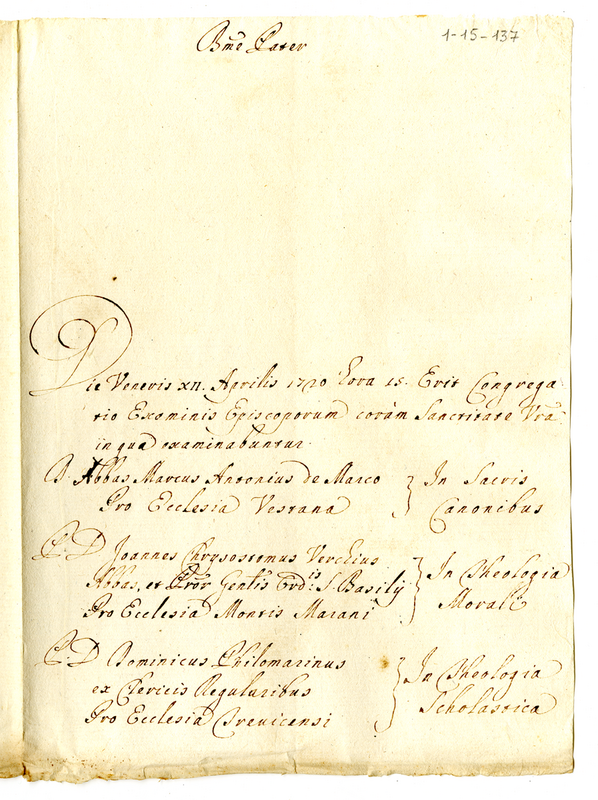 1-15-137
Bme Pater
Die Veneris XII. Aprilis 1720 hora 15. Erit Congrega
tio Examinis Episcoporum coràm Sanctitate Vra
in qua examinabuntur.
D. Abbas Marcus Antonius de Marco } In Sacris
Pro Ecclesia Vestana Canonibus
P. D. Joannes Chrysostomus Verclius
Abbas, et Pror Gentis Ordis S. Basilij } In Theologia
Pro Ecclesia Montis Marani Morali
P. D. Dominicus Philomarinus } In Theologia
ex Clericis Regularibus Scholastica
Pro Ecclesia